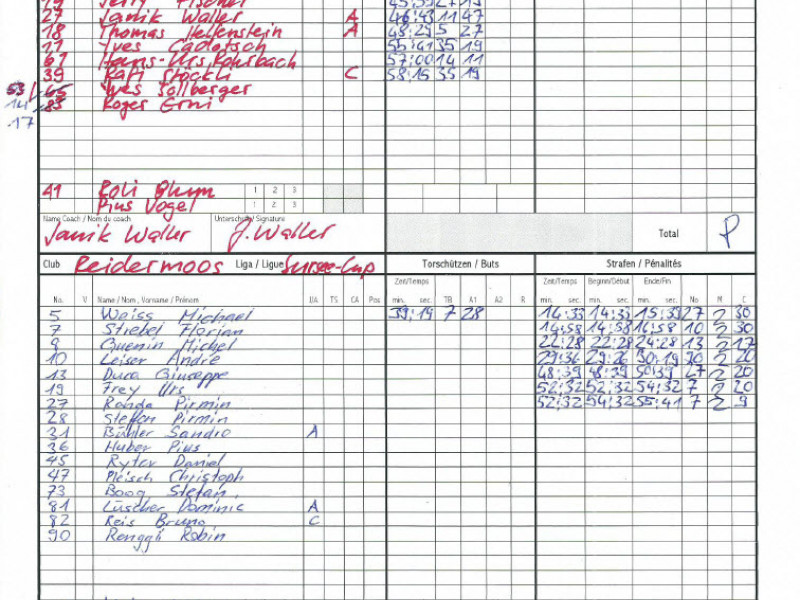 19 Jerry Fischer 45:39 27 19
27 Janik Waller A 46:43 11 47
18 Thomas Helfenstein A 48:29 5 27
11 Yves Cadotsch 55:41 35 19
61 Hans-Urs Rohrbach 57:00 14 11
39 Rafi Stöckli C 58:15 35 19
53/ 65 Yves Sollberger
14 / 85 Roger Erni
17
41 Roli Blum 1 2 3
Pius Vogel 1 2 3
Name Coach / Nom du coach Unterschrift / Signature
Janik Waller J. Waller Total
Club Reidermoos Liga / Ligue Sursee-Cup Torschützen / Buts Strafen / Pénalités
Zeit/Temps Zeit/Temps Beginn/Début Ende/Fin
No. V Name / Nom, Vorname / Prénom ÜA TS CA Pos min. sec. TB A1 A2 R min. sec. min. sec. min. sec. No M C
5 Weiss Michael 39:19 7 28 14:33 14:33 15:39 27 2 30
7 Striebel Florian 14:58 14:58 16:58 10 2 30
9 Quenin Michel 22:28 22:28 24:28 13 2 17
10 Leiser André 29:36 29:26 30:19 70 2 20
13 Duca Giuseppe 48:39 48:39 50:39 27 2 20
19 Frey Urs 52:32 52:32 54:32 7 2 20
27 Ronda Pirmin 52:32 54:32 55:41 7 2 9
28 Steffen Pirmin
31 Bühler Sandro A
36 Huber Pius
45 Ryter Daniel
47 Pleisch Christoph
73 Boog Stefan
81 Lüscher Dominic A
82 Reis Bruno C
90 Renggli Robin